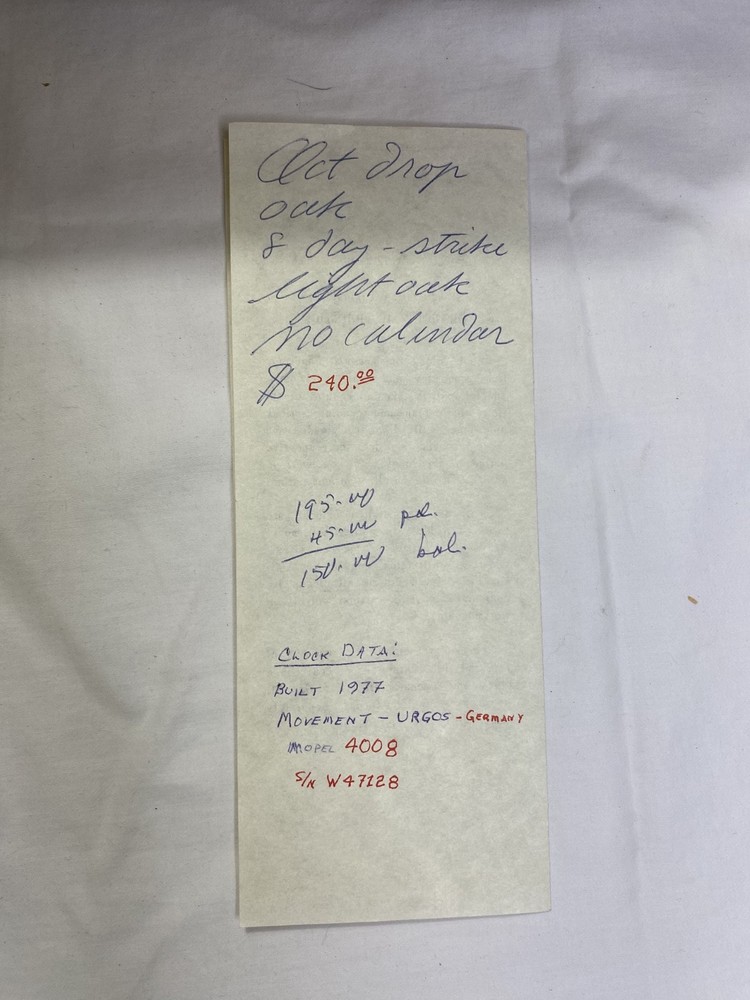 Oct drop
oak
8 day - strike
light oak
no calendar
$ 240.00
195.00
45.00 pd.
150.00 bal.
CLOCK DATA:
BUILT 1977
MOVEMENT - URGOS - GERMANY
MODEL 4008
S/N W47128